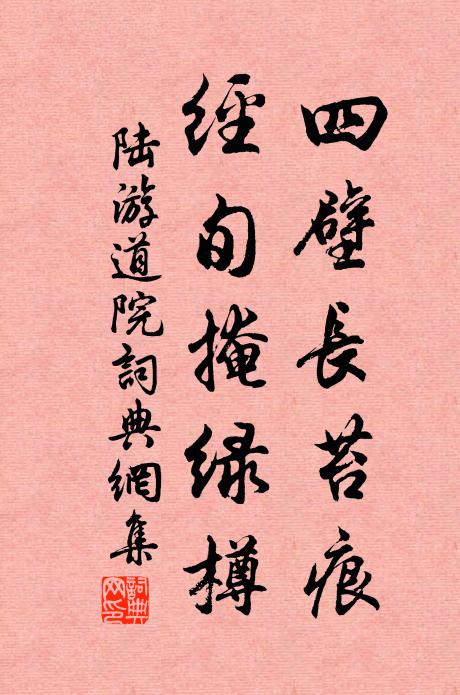 四壁長苔痕
經旬掩綠樽
陸游道院詞典網集
詞典
网印